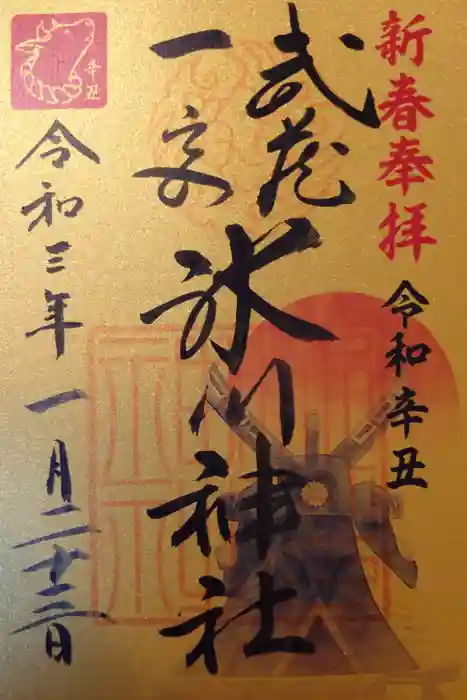 新春奉拝
令和辛丑
武蔵
一宮
氷川神社
令和三年一月二十三日
辛丑